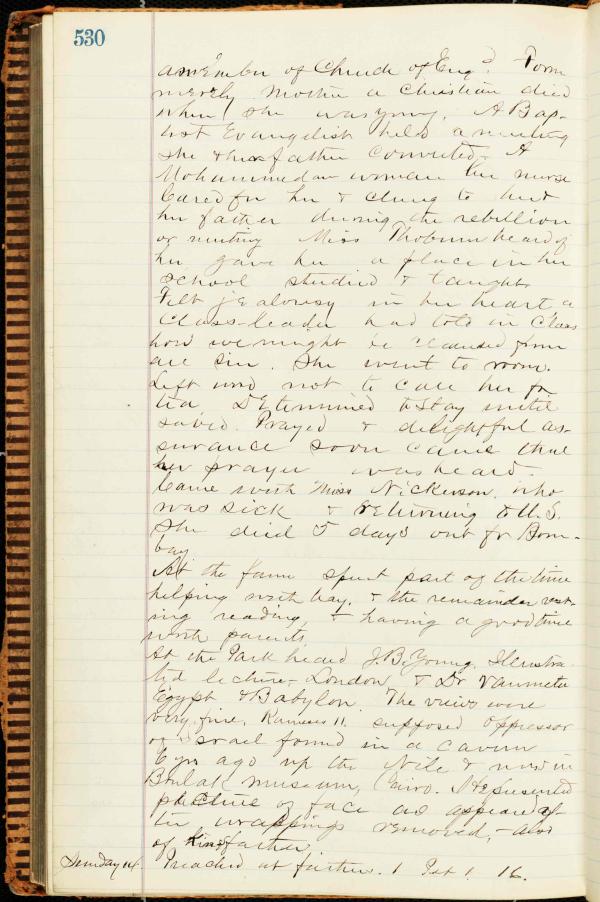 530
a member of Church of Engd. Form
merely mother a Christian died
when she was young. A Bap-
tist Evangelist held a meeting
she & her father converted. A
Mohammedan woman her nurse
cared for her & clung to her &
her father during the rebellion
or mutiny Miss Thoburn heard of
her gave her a place in her
school studied & taught.
Felt jealousy in her heart a
Class-leader had told in Class
how we might be cleansed from
all sin. She went to room.
Left word not to call her for
tea. Determined to stay until
saved. Prayed & delightful as-
surance soon came that
her prayer was heard.
Came with Miss Nickerson, who
was sick & returning to U.S.
She died 5 days out fr Bom-
bay.
At the farm spent part of the time
helping with hay, & the remainder rest-
ing reading, & having a good time
with parents
At the Park heard J.B. Young, Illustra-
ted lecture - London, & Dr Vanmeter
Egypt & Babylon. The views were
very fine, Rameses II. supposed oppressor
of Israel found in a cavern
6 yrs ago up the Nile & now in
Boulak museum, Cairo. Represented
picture of face as appeared af-
ter wrappings removed, - also
of his father.
Sunday 14. Preached at further. 1 Pet 1. 16.